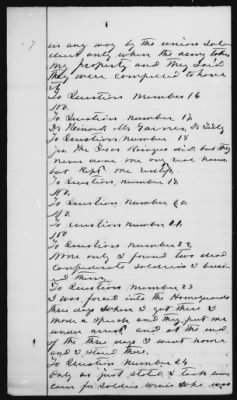 7
in any way by the union sol
diers only when the army taken
my property and they said
they were compeled to have
it
To Question Number 16
No.
To Question number 17
To Question Number 18
yes The did but they
never done me any
but kept me
To Question number 19
No.
To Question Number 20
No
To question number 21
No
To Question number 22,
None only I found two dead
confederate soldiers I buri
ed them
To Question number 23
I was forced into the Homeguards
three days when I got there I
made a speech and they put me
under arrest and at the end
of the three days I went home
and I staid there.
To Question Number 24
only as just stated I took
care for Soldiers who was